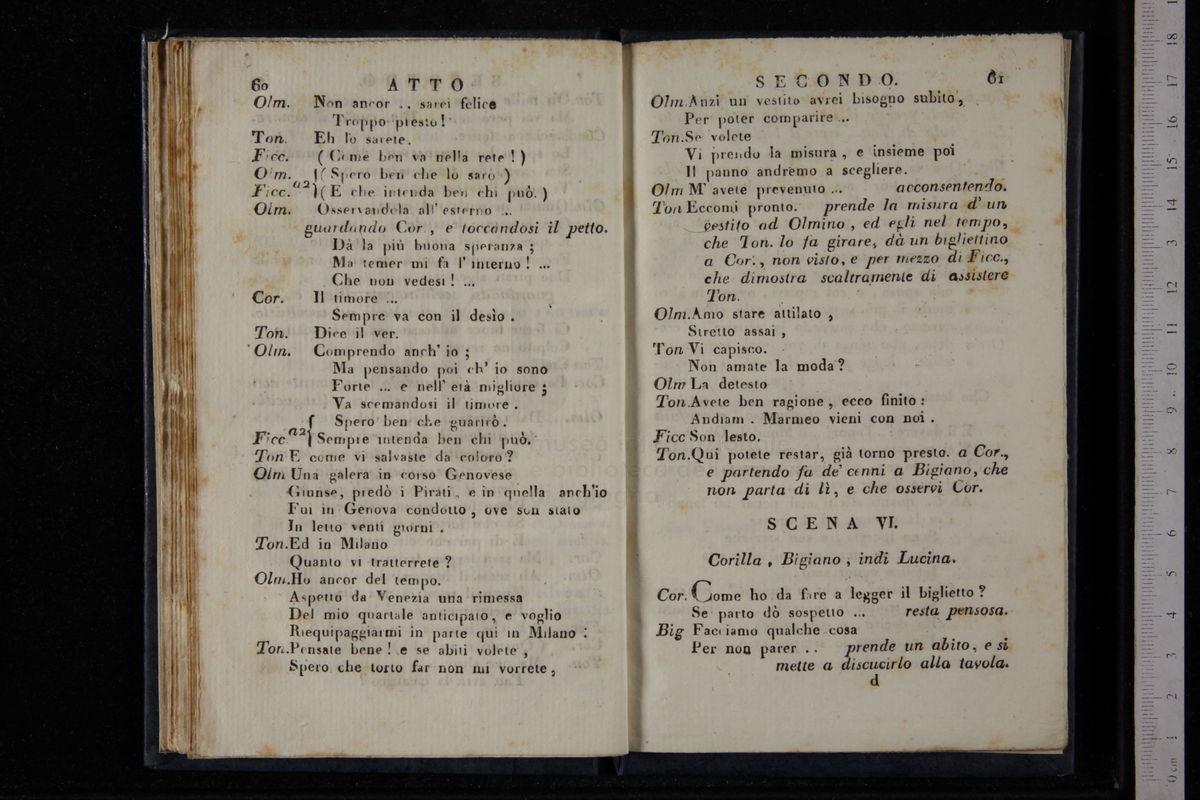 60 ATTO
Olm. Non ancor .. sarei felice
Troppo presto!
Ton. Eh lo sarete.
Ficc. ( Come ben va nella rete ! )
Olm. { ( Spero ben che lo sarò )
Ficc. a2 } ( E che intenda ben chi può. )
Olm. Osservandola all' esterno ...
guardando Cor , e toccandosi il petto.
Dà la più buona speranza ;
Ma temer mi fa l' interno ! ...
Che non vedesi ! ...
Cor. Il timore ...
Sempre va con il desìo .
Ton. Dice il ver.
Olm. Comprendo anch' io ;
Ma pensando poi ch' io sono
Forte ... e nell' età migliore ;
Va scemandosi il timore .
{ Spero ben che guarirò .
Ficc a2 } Sempre intenda ben chi può.
Ton E come vi salvaste da coloro ?
Olm Una galera in corso Genovese
Giunse, predò i Pirati , e in quella anch'io
Fui in Genova condotto , ove son stato
In letto venti giorni .
Ton. Ed in Milano
Quanto vi tratterrete ?
Olm. Ho ancor del tempo.
Aspetto da Venezia una rimessa
Del mio quartale anticipato, e voglio
Riequipaggiarmi in parte qui in Milano :
Ton. Pensate bene ! e se abiti volete ,
Spero che torto far non mi vorrete ,
SECONDO. 61
Olm. Anzi un vestito avrei bisogno subito ,
Per poter comparire ...
Ton. Se volete
Vi prendo la misura , e insieme poi
Il panno andremo a scegliere.
Olm M' avete prevenuto ... acconsentendo.
Ton Eccomi pronto. prende la misura d' un
vestito ad Olmino , ed egli nel tempo,
che Ton. lo fa girare, dà un bigliettino
a Cor., non visto, e per mezzo di Ficc.,
che dimostra scaltramente di assistere
Ton.
Olm. Amo stare attilato ,
Stretto assai ,
Ton Vi capisco.
Non amate la moda ?
Olm La detesto
Ton. Avete ben ragione , ecco finito :
Andiam . Marmeo vieni con noi .
Ficc Son lesto.
Ton. Qui potete restar, già torno presto. a Cor.,
e partendo fa de' cenni a Bigiano, che
non parta di lì , e che osservi Cor.
SCENA VI.
Corilla , Bigiano , indi Lucina.
Cor. Come ho da fare a legger il biglietto ?
Se parto dò sospetto ... resta pensosa.
Big Facciamo qualche cosa
Per non parer .. prende un abito, e si
mette a discucirlo alla tavola.
d